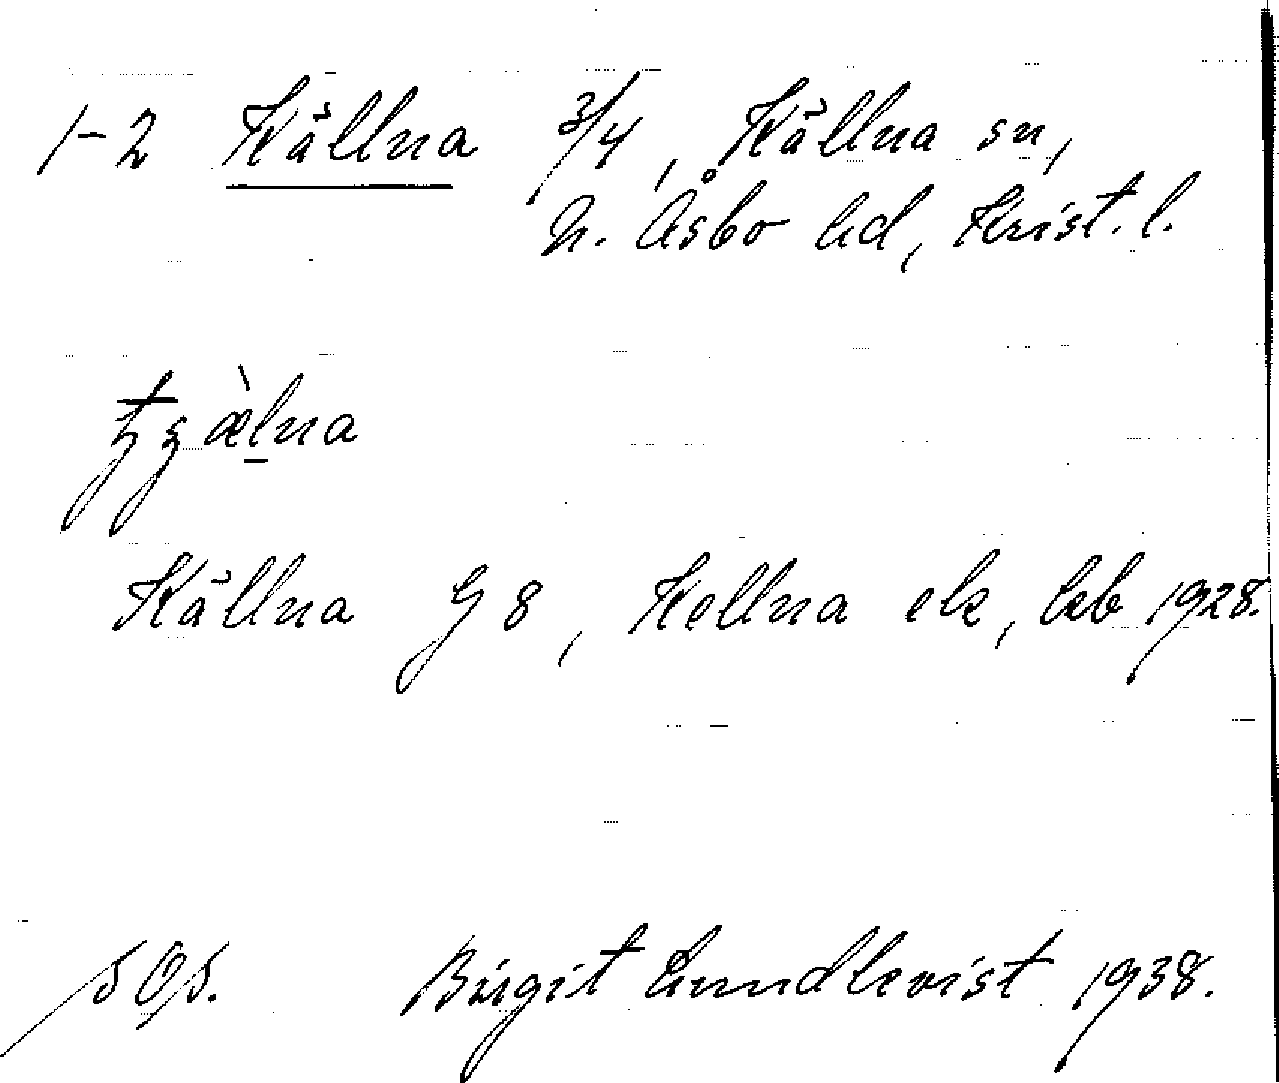 1-2 Källna 3/4, Källna sn,
N. Åsbo hd, Krist. l.
Källna G 8, Kellna ek, kb 1928.
Birgit Lundkvist 1938.